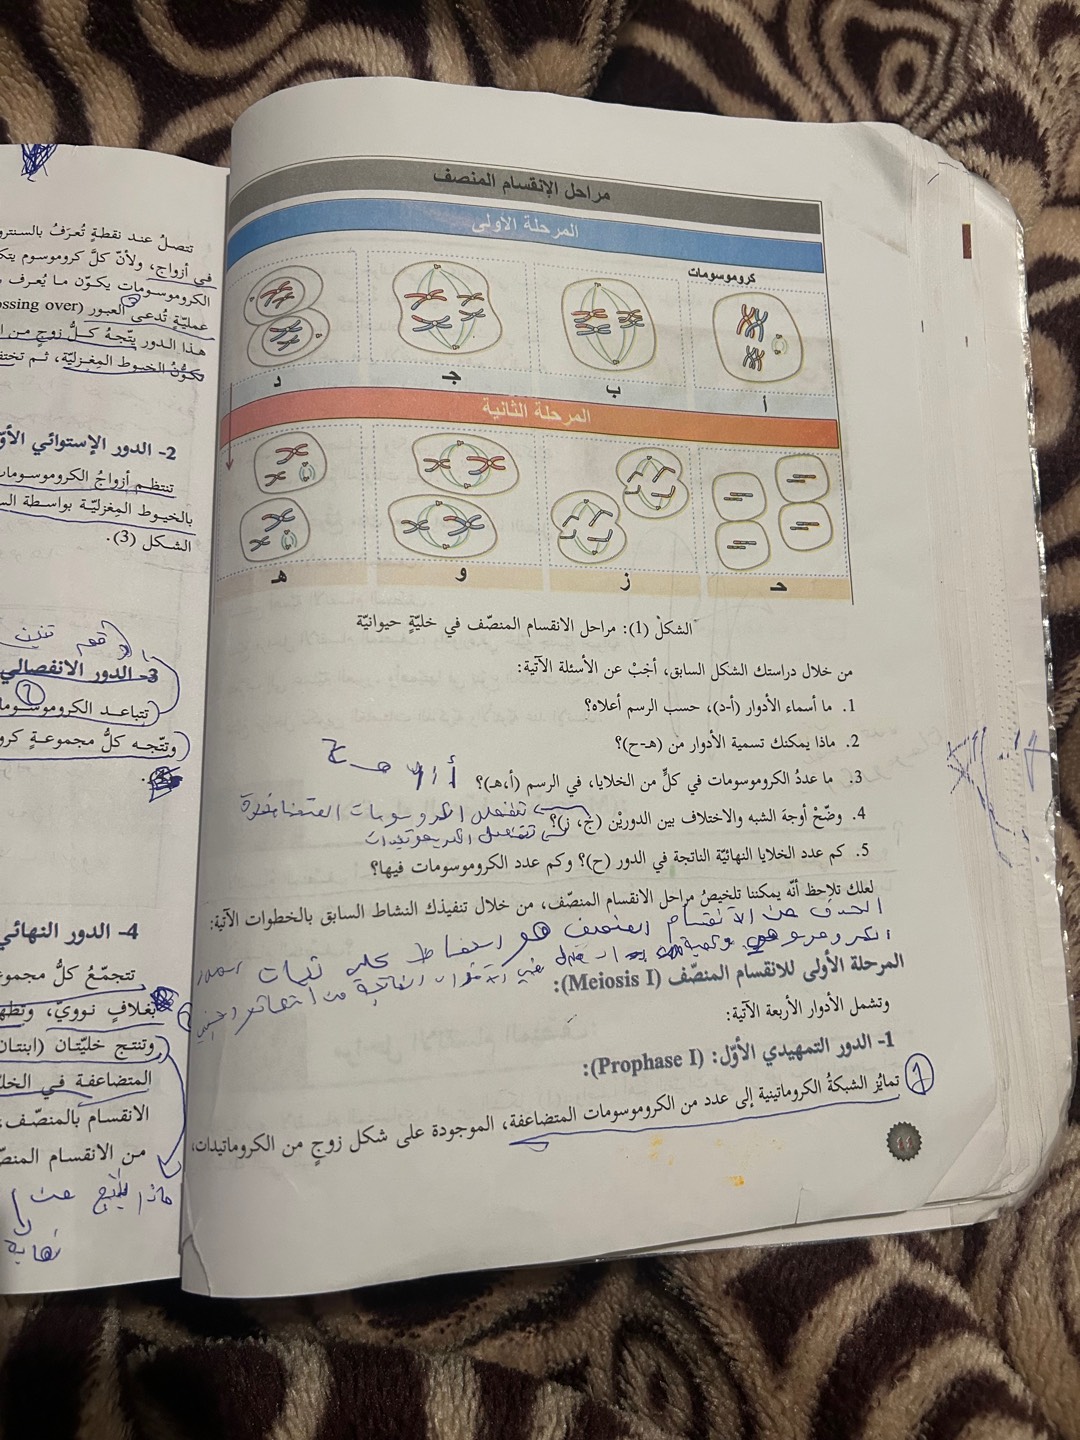 مراحل الإنقسام المنصف
المرحلة الأولى
كروموسومات
أ
ب
جـ
د
المرحلة الثانية
هـ
و
ز
حـ
الشكل (1): مراحل الانقسام المنصّف في خليّةٍ حيوانيّة
من خلال دراستك الشكل السابق، أجبْ عن الأسئلة الآتية:
1. ما أسماء الأدوار (أ-د)، حسب الرسم أعلاه؟
2. ماذا يمكنك تسمية الأدوار من (هـ-ح)؟
3. ما عددُ الكروموسومات في كلٍّ من الخلايا، في الرسم (أ،هـ)؟
4. وضّحْ أوجهَ الشبه والاختلاف بين الدوريْن (ج، ز)؟
تنفصل الكروموسومات المتضاعفة
تنفصل الكروماتيدات
5. كم عدد الخلايا النهائيّة الناتجة في الدور (ح)؟ وكم عدد الكروموسومات فيها؟
لعلك تلاحظ أنّه يمكننا تلخيصُ مراحل الانقسام المنصّف، من خلال تنفيذك النشاط السابق بالخطوات الآتية:
الهدف من الانقسام المنصف هو الحفاظ على ثبات
المرحلة الأولى للانقسام المنصّف (Meiosis I):
وتشمل الأدوار الأربعة الآتية:
1- الدور التمهيدي الأوّل: (Prophase I):
تمايُز الشبكةُ الكروماتينية إلى عدد من الكروموسومات المتضاعفة، الموجودة على شكل زوجٍ من الكروماتيدات،
تتصلُ عند نقطةٍ تُعرَفُ بالسنترو
في أزواج، ولأنّ كلَّ كروموسوم يتك
الكروموسومات يكوّن ما يُعرف
عمليّةٍ تُدعى العبور (ossing over
هذا الدور يتّجهُ كلُّ زوجٍ من ا
تكوُّنُ الخيوط المِغزليّة، ثم تختف
2- الدور الإستوائي الأوّ
تنتظم أزواجُ الكروموسومات
بالخيوط المِغزليّة بواسطة الس
الشكل (3).
3- الدور الانفصالي
تتباعد الكروموسوما
وتتّجه كلُّ مجموعةٍ كرو
4- الدور النهائي
تتجمّعُ كلُّ مجموعة
بغلافٍ نوويّ، وتظه
وتنتج خليّتان (ابنتان
المتضاعفة في الخل
الانقسام بالمنصّف،
من الانقسام المنص
ماذا ينتج عن
نهاية